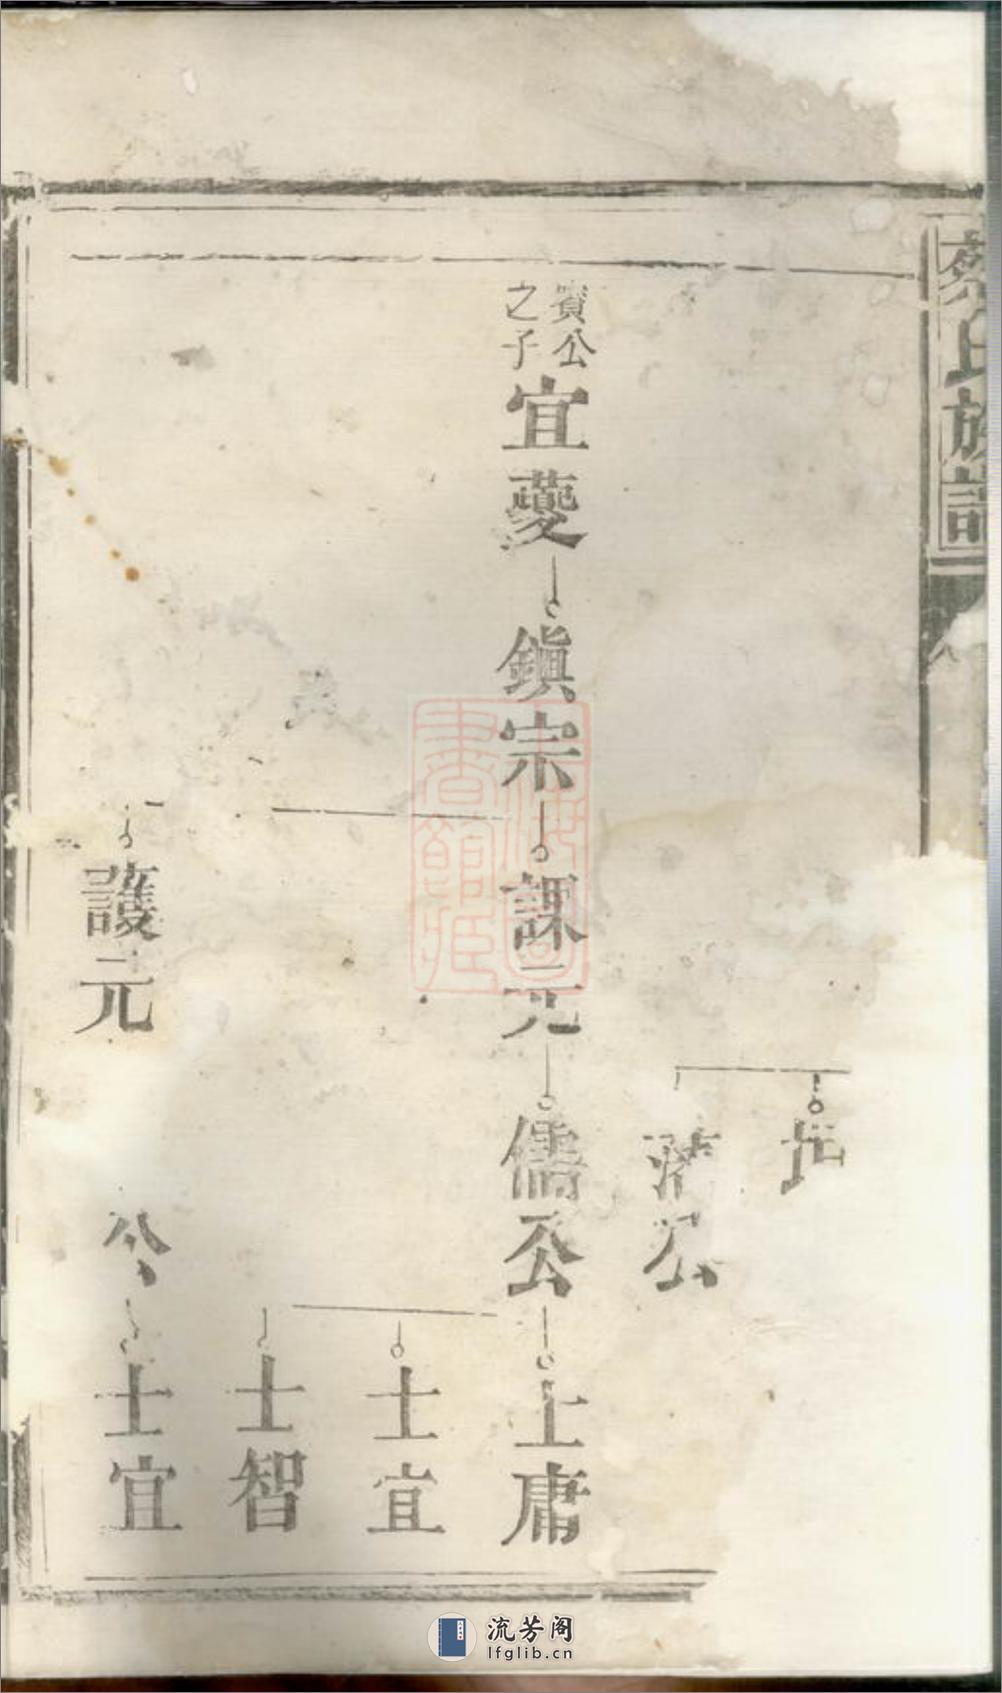 蔡氏族譜
坵
公
賓公
之子
宜夔
鎮宗
課元
儒公
士庸
士宜
士智
護元
公
士宜
上海圖書館藏
流芳阁
lfglib.cn